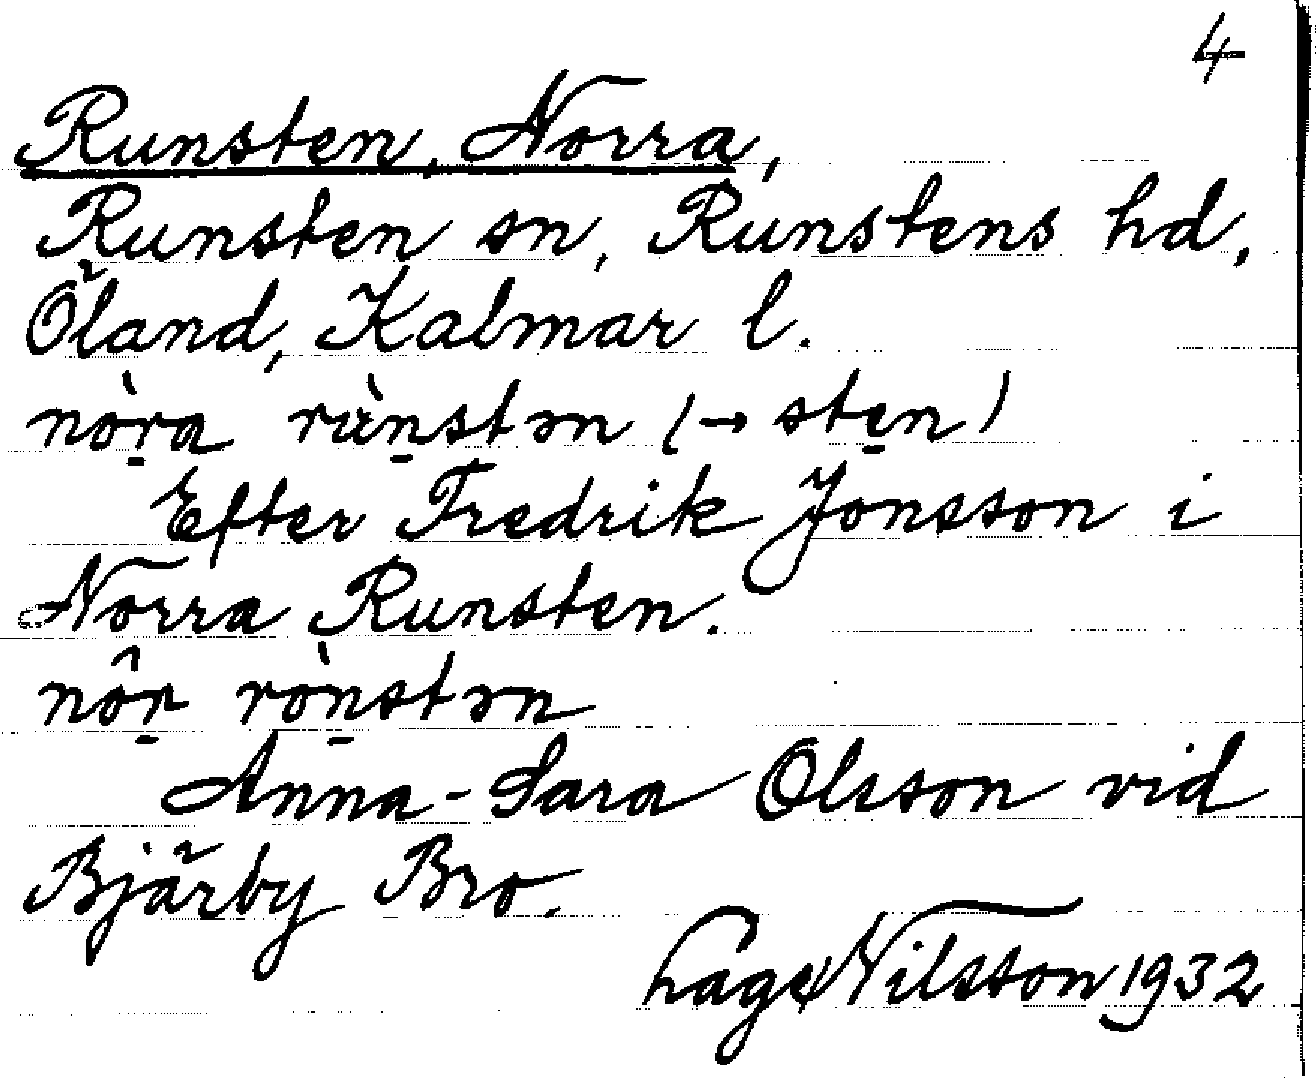 4
Runsten, Norra,
Runsten sn, Runstens hd,
Öland, Kalmar l.
nòr̠a rùn̠stən (→ stẹn)
Efter Fredrik Jonsson i
Norra Runsten.
nôr̠ ròn̠stən
Anna-Sara Olsson vid
Bjärby Bro.
Lage Nilsson 1932